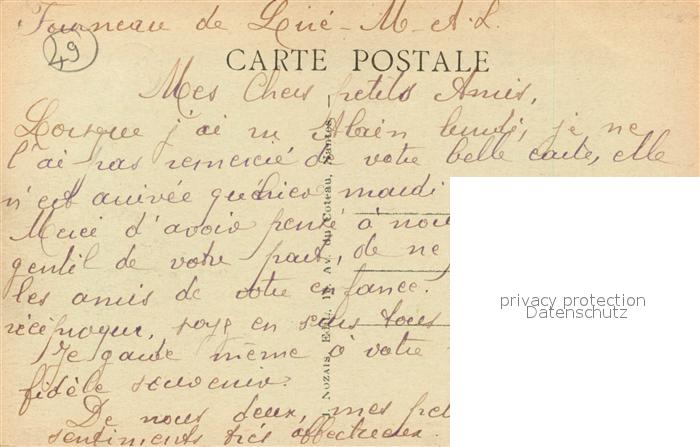 Fourneau de Liré - M-et-L.
49
CARTE POSTALE
Mes Chers petits Amis,
Lorsque j'ai vu Alain lundi, je ne
l'ai pas remercié de votre belle carte, elle
n'est arrivée qu'hier mardi
Merci d'avoir pensé à nous
gentil de votre part, de ne
les amis de votre enfance.
réciproque, soyez en sûrs tous
Je garde même à votre
fidèle souvenir.
De nous deux, mes pet
sentiments très affectueux.
J. Nozais, Edit., 11, Av. du Coteau, Nantes
privacy protection
Datenschutz